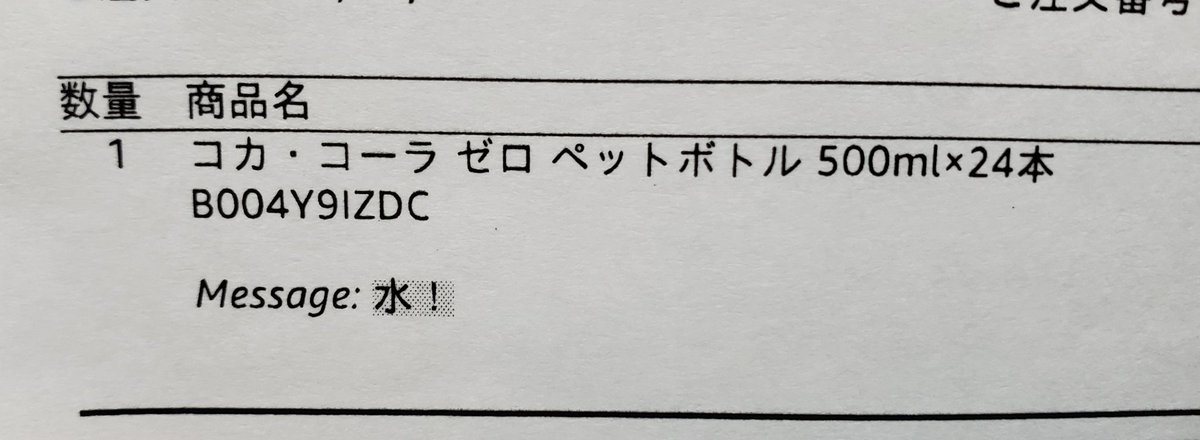 ご注文番号
数量 商品名
1 コカ・コーラ ゼロ ペットボトル 500ml×24本
B004Y9IZDC
Message: 水！